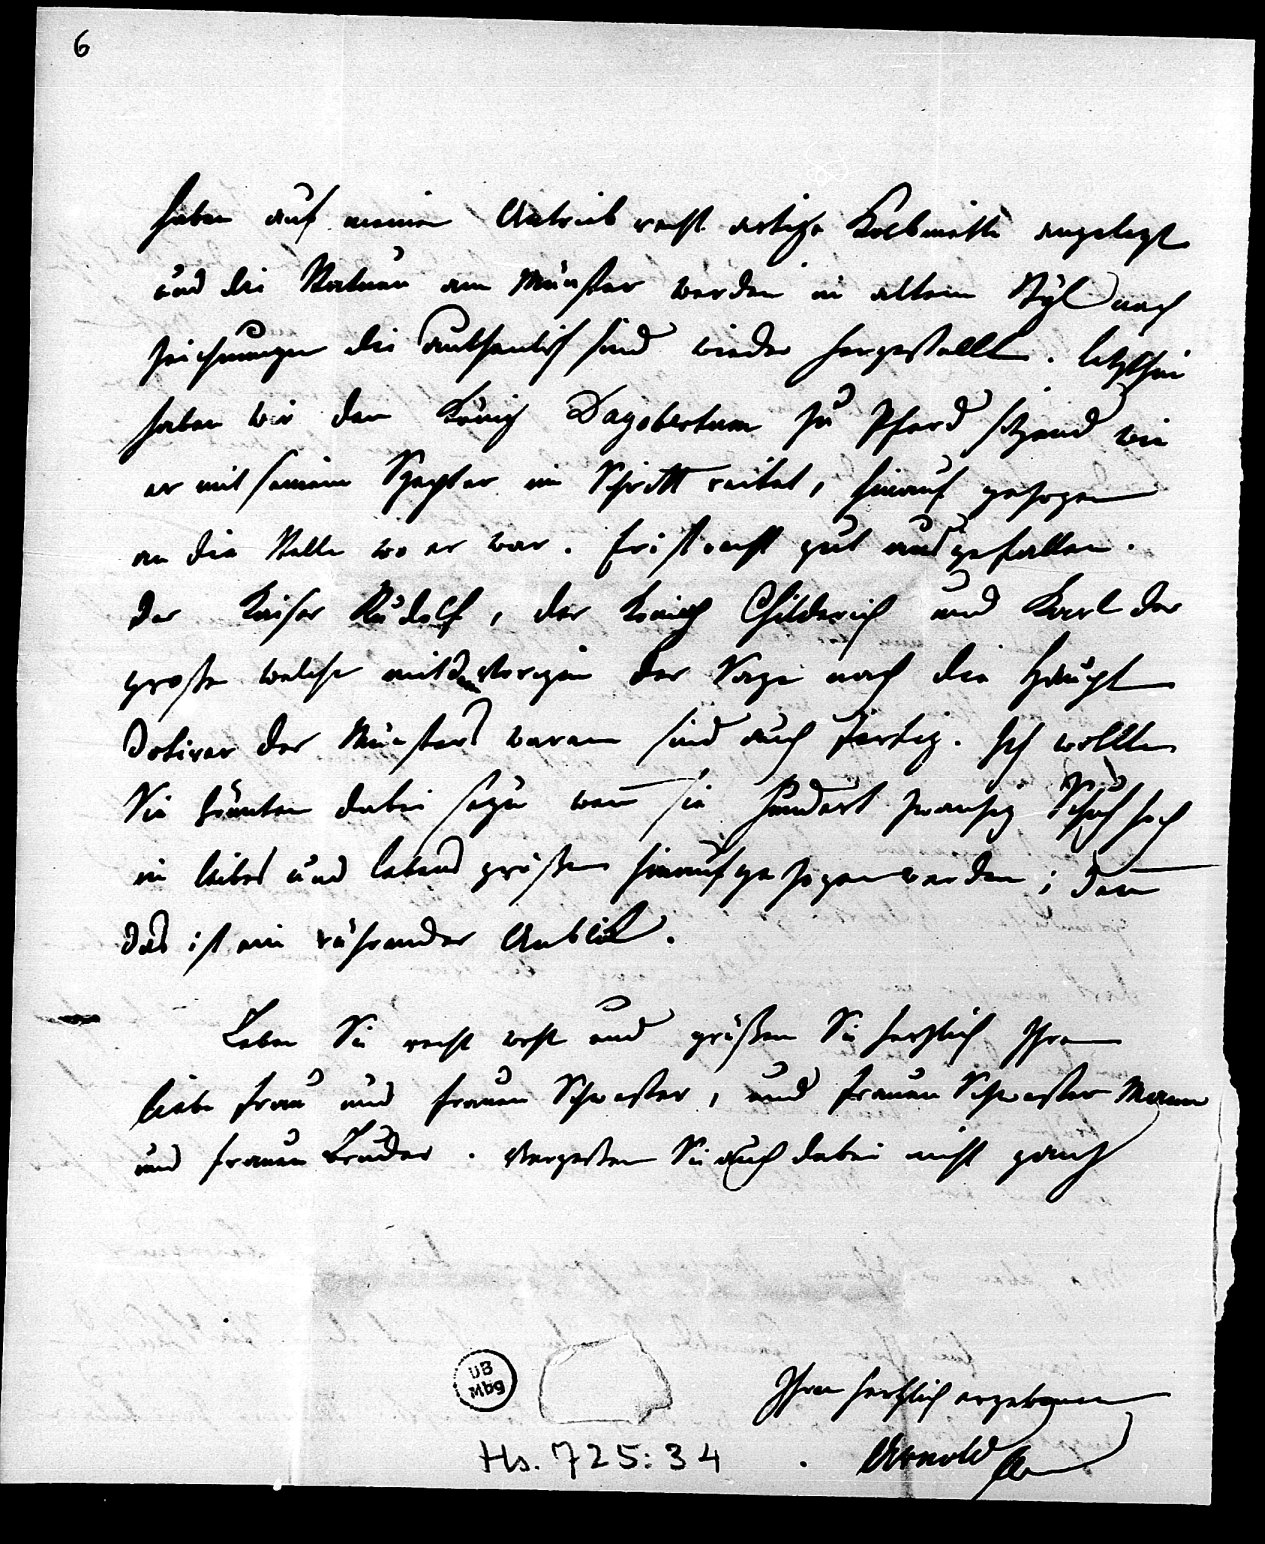 6
haben auf meinen Antrieb recht artige Kabinette angelegt
und die Statuen am Münster werden in altem Styl nach
Zeichnungen die authentisch sind wieder hergestellt. Letzthin
haben wir den König Dagobertum zu Pferd sitzend wie
er mit seinem Szepter im Schritt reitet, hinauf gezogen
an die Stelle wo er war. Er ist recht gut ausgefallen.
Der Kaiser Rudolf, der König Childerich und Karl der
große welche mit den Vorigen der Sage nach die Haupt
Dotirer des Münsters waren sind auch fertig. Ich wollte
Sie könnten dabei seyn wenn sie hundert zwanzig Schuh hoch
in leibes und lebens größe hinaufgezogen werden; denn
das ist ein rührender Anblick.
Leben Sie recht wohl und grüßen Sie herzlich Ihre
liebe Frau und Frauen Schwester, und Frauen Schwester Mann
und Frauen Bruder. Vergessen Sie auch dabei nicht ganz
Ihren herzlich ergebenen
Arnold
UB
Mbg
Hs. 725:34